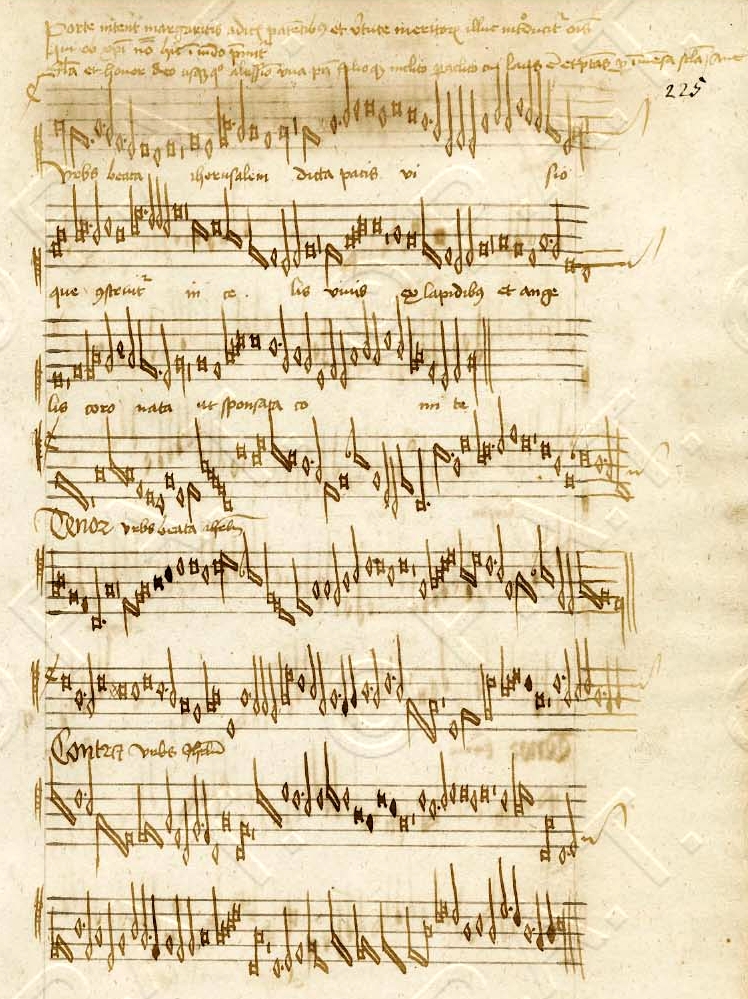 Porte nitent margaritis aditis patentibus et virtute meritorum illuc introducitur omnis
qui ob xpi no hic i mdo premitr
Gla et honor deo usqq° altissimo una pri filioqz inclito paclito cui laus e et ptas p imesa scla Ame
225
Urbs beata iherusalem dicta pacis vi sio
que 9struitr in ce lis vivis ex lapidibus et ange
lis coro nata ut sponsata co mi te
Tenor urbs beata iherlm
Contra urbs iherlm